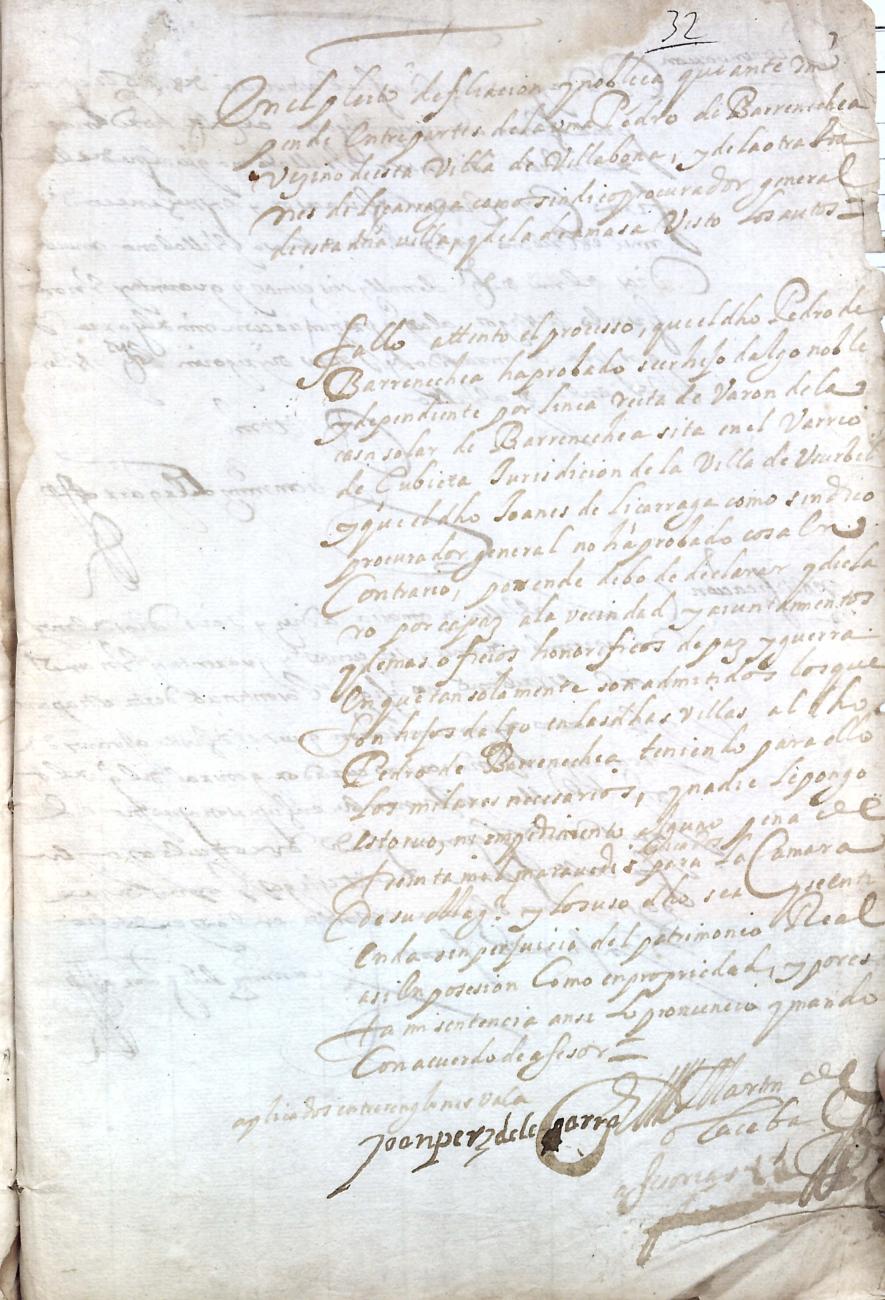 32
En el pleito de filiacion y nobleça que ante mi
pende entre partes de la una Pedro de Barrenechea
vezino desta Villa de Villabona, y de la otra Joa
nes de liçarraga como sindico procurador general
desta dha villa y de la de amasa Visto los autos =
fallo attento el processo, que el dho Pedro de
Barrenechea ha probado ser hijo dalgo noble
y dependiente por linea recta de Varon de la
casa solar de Barrenechea sita en el Varrio
de Çubieta Jurisdicion de la Villa de Vsurbil
y que el dho Joanes de liçarraga como sindico
procurador general no ha probado cosa En
Contrario, por ende debo de declarar y decla
ro por capaz a la vecindad y aiuntamientos
y demas officios honorificos de paz y guerra
En que tan solamente son admitidos los que
Son hijos dalgo en las dhas villas al dho
Pedro de Barrenechea teniendo para ello
los millares necesarios, y nadie le ponga
estorvo, ni impedimento alguno pena de
treinta mil maravedis aplicados para la Camara
de su Magd. y lo suso dho sea y se enti
enda sin perjuicio del patrimonio Real
asi En posesion Como en propriedad, y por es
ta mi sentencia ansi lo pronuncio y mando
Con acuerdo de asesor =
aplicados entre renglones vala
Joan perz de legarra